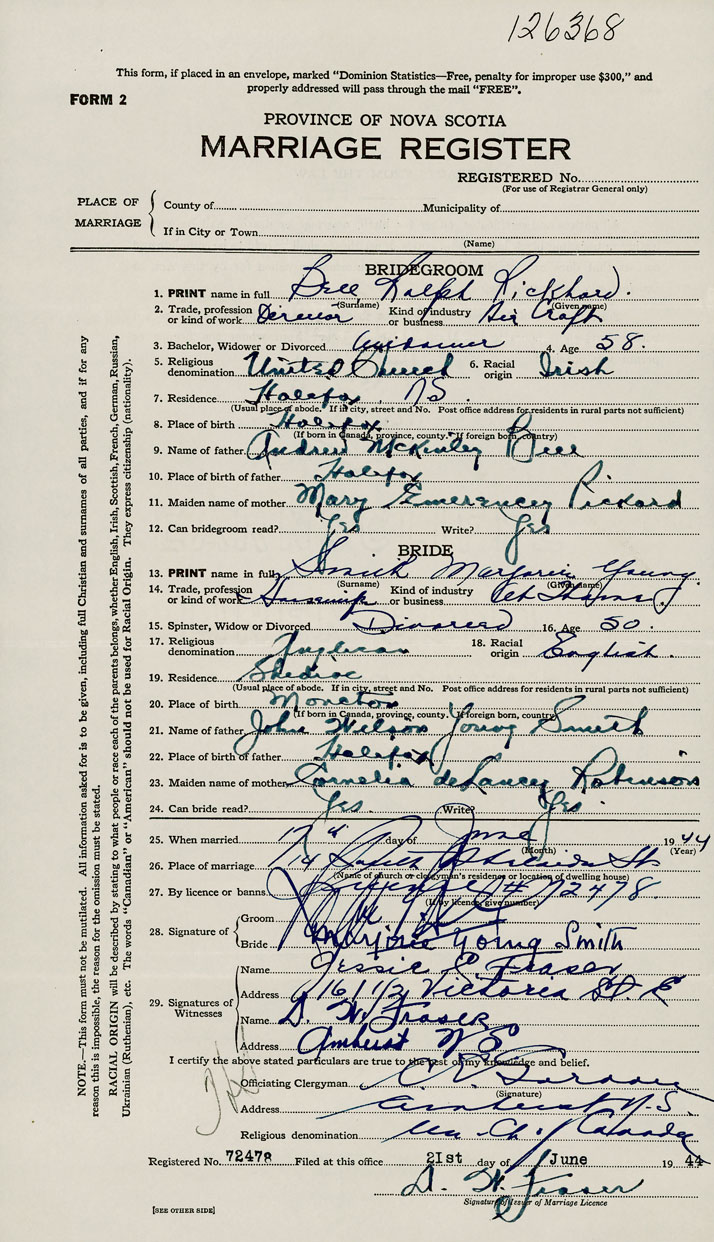 126368
This form, if placed in an envelope, marked "Dominion Statistics—Free, penalty for improper use $300," and
properly addressed will pass through the mail "FREE".
FORM 2
PROVINCE OF NOVA SCOTIA
MARRIAGE REGISTER
REGISTERED No.
(For use of Registrar General only)
PLACE OF MARRIAGE
County of Municipality of
If in City or Town
(Name)
BRIDEGROOM
1. PRINT name in full Bell Ralph Pickhard.
(Surname) (Given name)
2. Trade, profession or kind of work Director Kind of industry or business Air Craft
3. Bachelor, Widower or Divorced Widower 4. Age 58.
5. Religious denomination United Church 6. Racial origin Irish
7. Residence Halifax, NS.
(Usual place of abode. If in city, street and No. Post office address for residents in rural parts not sufficient)
8. Place of birth Halifax
(If born in Canada, province, county. If foreign born, country)
9. Name of father Andrew McKinley Bell
10. Place of birth of father Halifax
11. Maiden name of mother Mary Emerencey Pickard
12. Can bridegroom read? Yes Write? Yes
BRIDE
13. PRINT name in full Smith Marjorie Young.
(Surname) (Given name)
14. Trade, profession or kind of work Kind of industry or business At Home
15. Spinster, Widow or Divorced Divorced 16. Age 50.
17. Religious denomination Anglican 18. Racial origin English.
19. Residence Shediac
(Usual place of abode. If in city, street and No. Post office address for residents in rural parts not sufficient)
20. Place of birth Moncton
(If born in Canada, province, county. If foreign born, country)
21. Name of father John Wilson Young Smith
22. Place of birth of father Halifax
23. Maiden name of mother Cornelia deLancey Robinson
24. Can bride read? Yes. Write? Yes.
25. When married 17th day of June 1944
(Month) (Year)
26. Place of marriage 14 St
(Name of church or clergyman's residence or location of dwelling house)
27. By licence or banns License # 72478.
(If by licence, give number)
28. Signature of
Groom
Bride Marjorie Young Smith
29. Signatures of Witnesses
Name Jessie E. Fraser
Address 16 1/2 Victoria St. E
Name D. W. Fraser
Address Amherst N S
I certify the above stated particulars are true to the best of my knowledge and belief.
Officiating Clergyman
(Signature)
Address Amherst N.S.
Religious denomination Un. Ch. of Canada
Registered No. 72478 Filed at this office 21st day of June 19 44
D. W. Fraser
Signature of Issuer of Marriage Licence
[SEE OTHER SIDE]
NOTE.—This form must not be mutilated. All information asked for is to be given, including full Christian and surnames of all parties, and if for any
reason this is impossible, the reason for the omission must be stated.
RACIAL ORIGIN will be described by stating to what people or race each of the parents belongs, whether English, Irish, Scottish, French, German, Russian,
Ukrainian (Ruthenian), etc. The words "Canadian" or "American" should not be used for Racial Origin. They express citizenship (nationality).